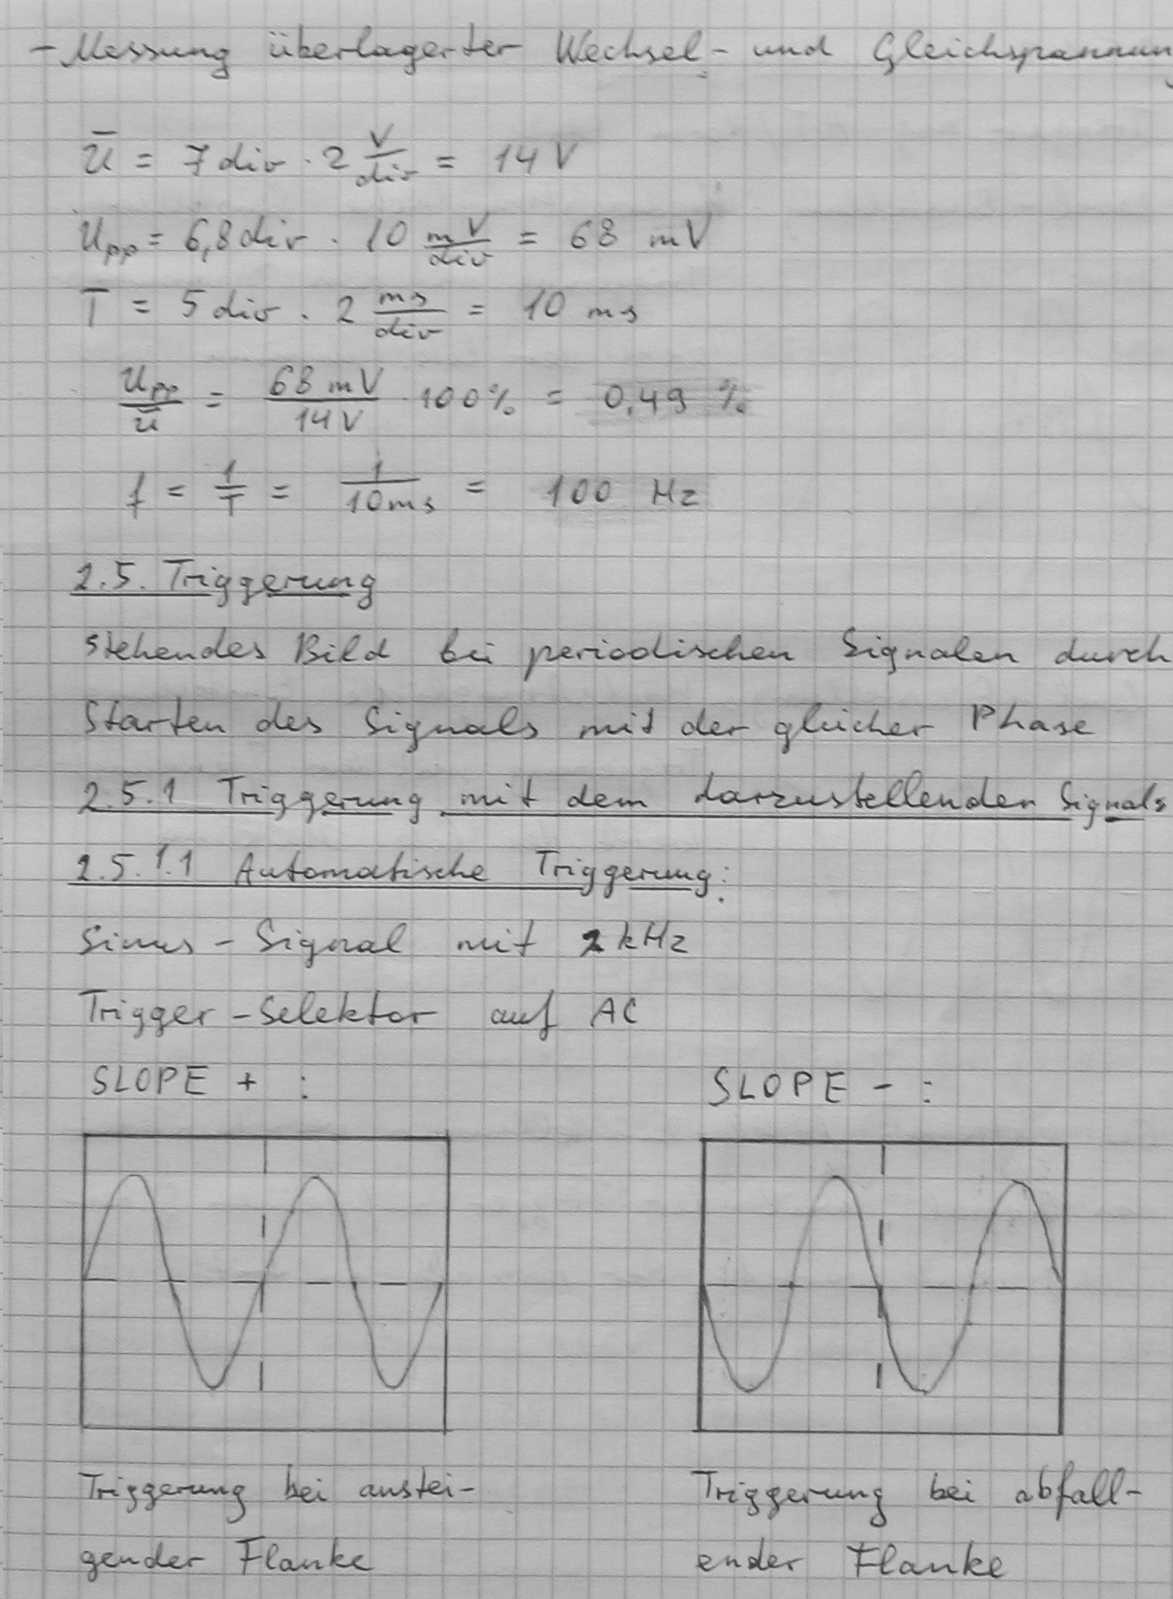 - Messung überlagerter Wechsel- und Gleichspannung
ū = 7 div · 2 V/div = 14 V
Upp = 6,8 div · 10 mV/div = 68 mV
T = 5 div · 2 ms/div = 10 ms
Upp/ū = 68 mV/14V · 100% = 0,49 %
f = 1/T = 1/10ms = 100 Hz
2.5. Triggerung
stehendes Bild bei periodischen Signalen durch
Starten des Signals mit der gleicher Phase
2.5.1 Triggerung mit dem darzustellenden Signals
2.5.1.1 Automatische Triggerung:
Sinus-Signal mit 2 kHz
Trigger-Selektor auf AC
SLOPE + :
SLOPE - :
Triggerung bei anstei-
gender Flanke
Triggerung bei abfall-
ender Flanke